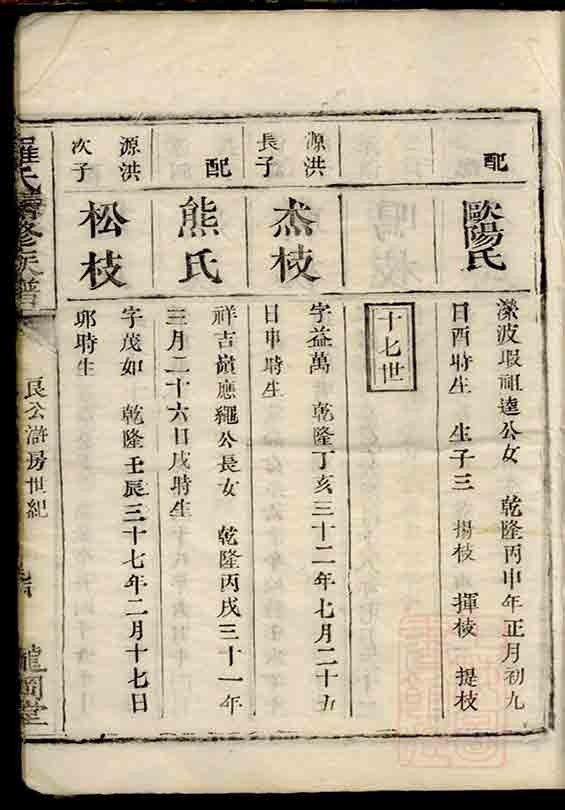 配
歐陽氏
濴波塅祖遠公女 乾隆丙申年正月初九
日酉時生 生子三 揚枝 揮枝 提枝
十七世
源洪
長子
杰枝
字益萬 乾隆丁亥三十二年七月二十九
日申時生
配
熊氏
祥吉嶺應繩公長女 乾隆丙戌三十一年
三月二十六日戌時生
源洪
次子
松枝
字茂如 乾隆壬辰三十七年二月十七日
卯時生
羅氏
修族譜
良公滸房世紀
龍岡堂